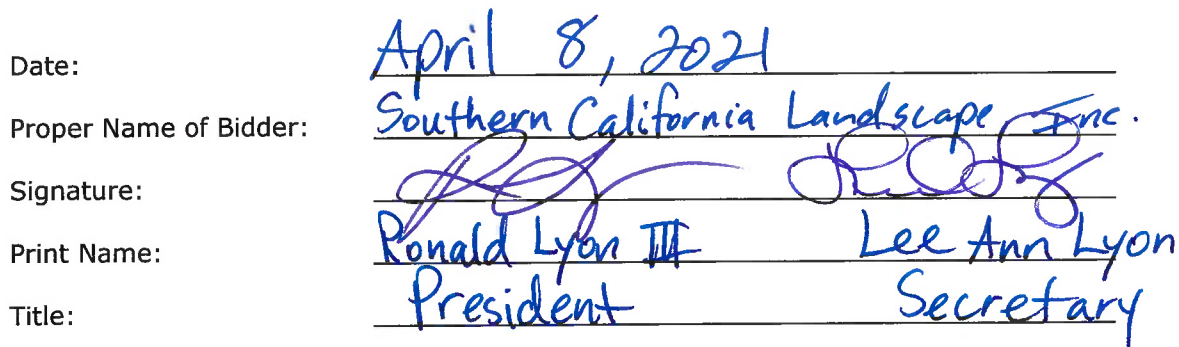 Date: April 8, 2021
Proper Name of Bidder: Southern California Landscape, Inc.
Signature:
Print Name: Ronald Lyon III Lee Ann Lyon
Title: President Secretary